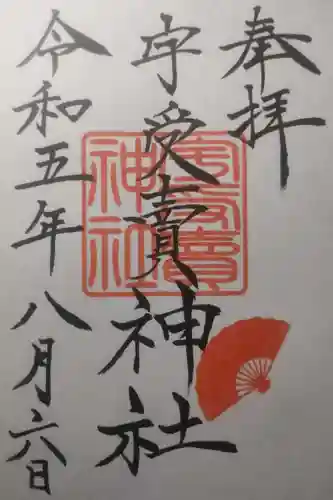 奉拝
宇受賣神社
宇受賣
神社
令和五年八月六日